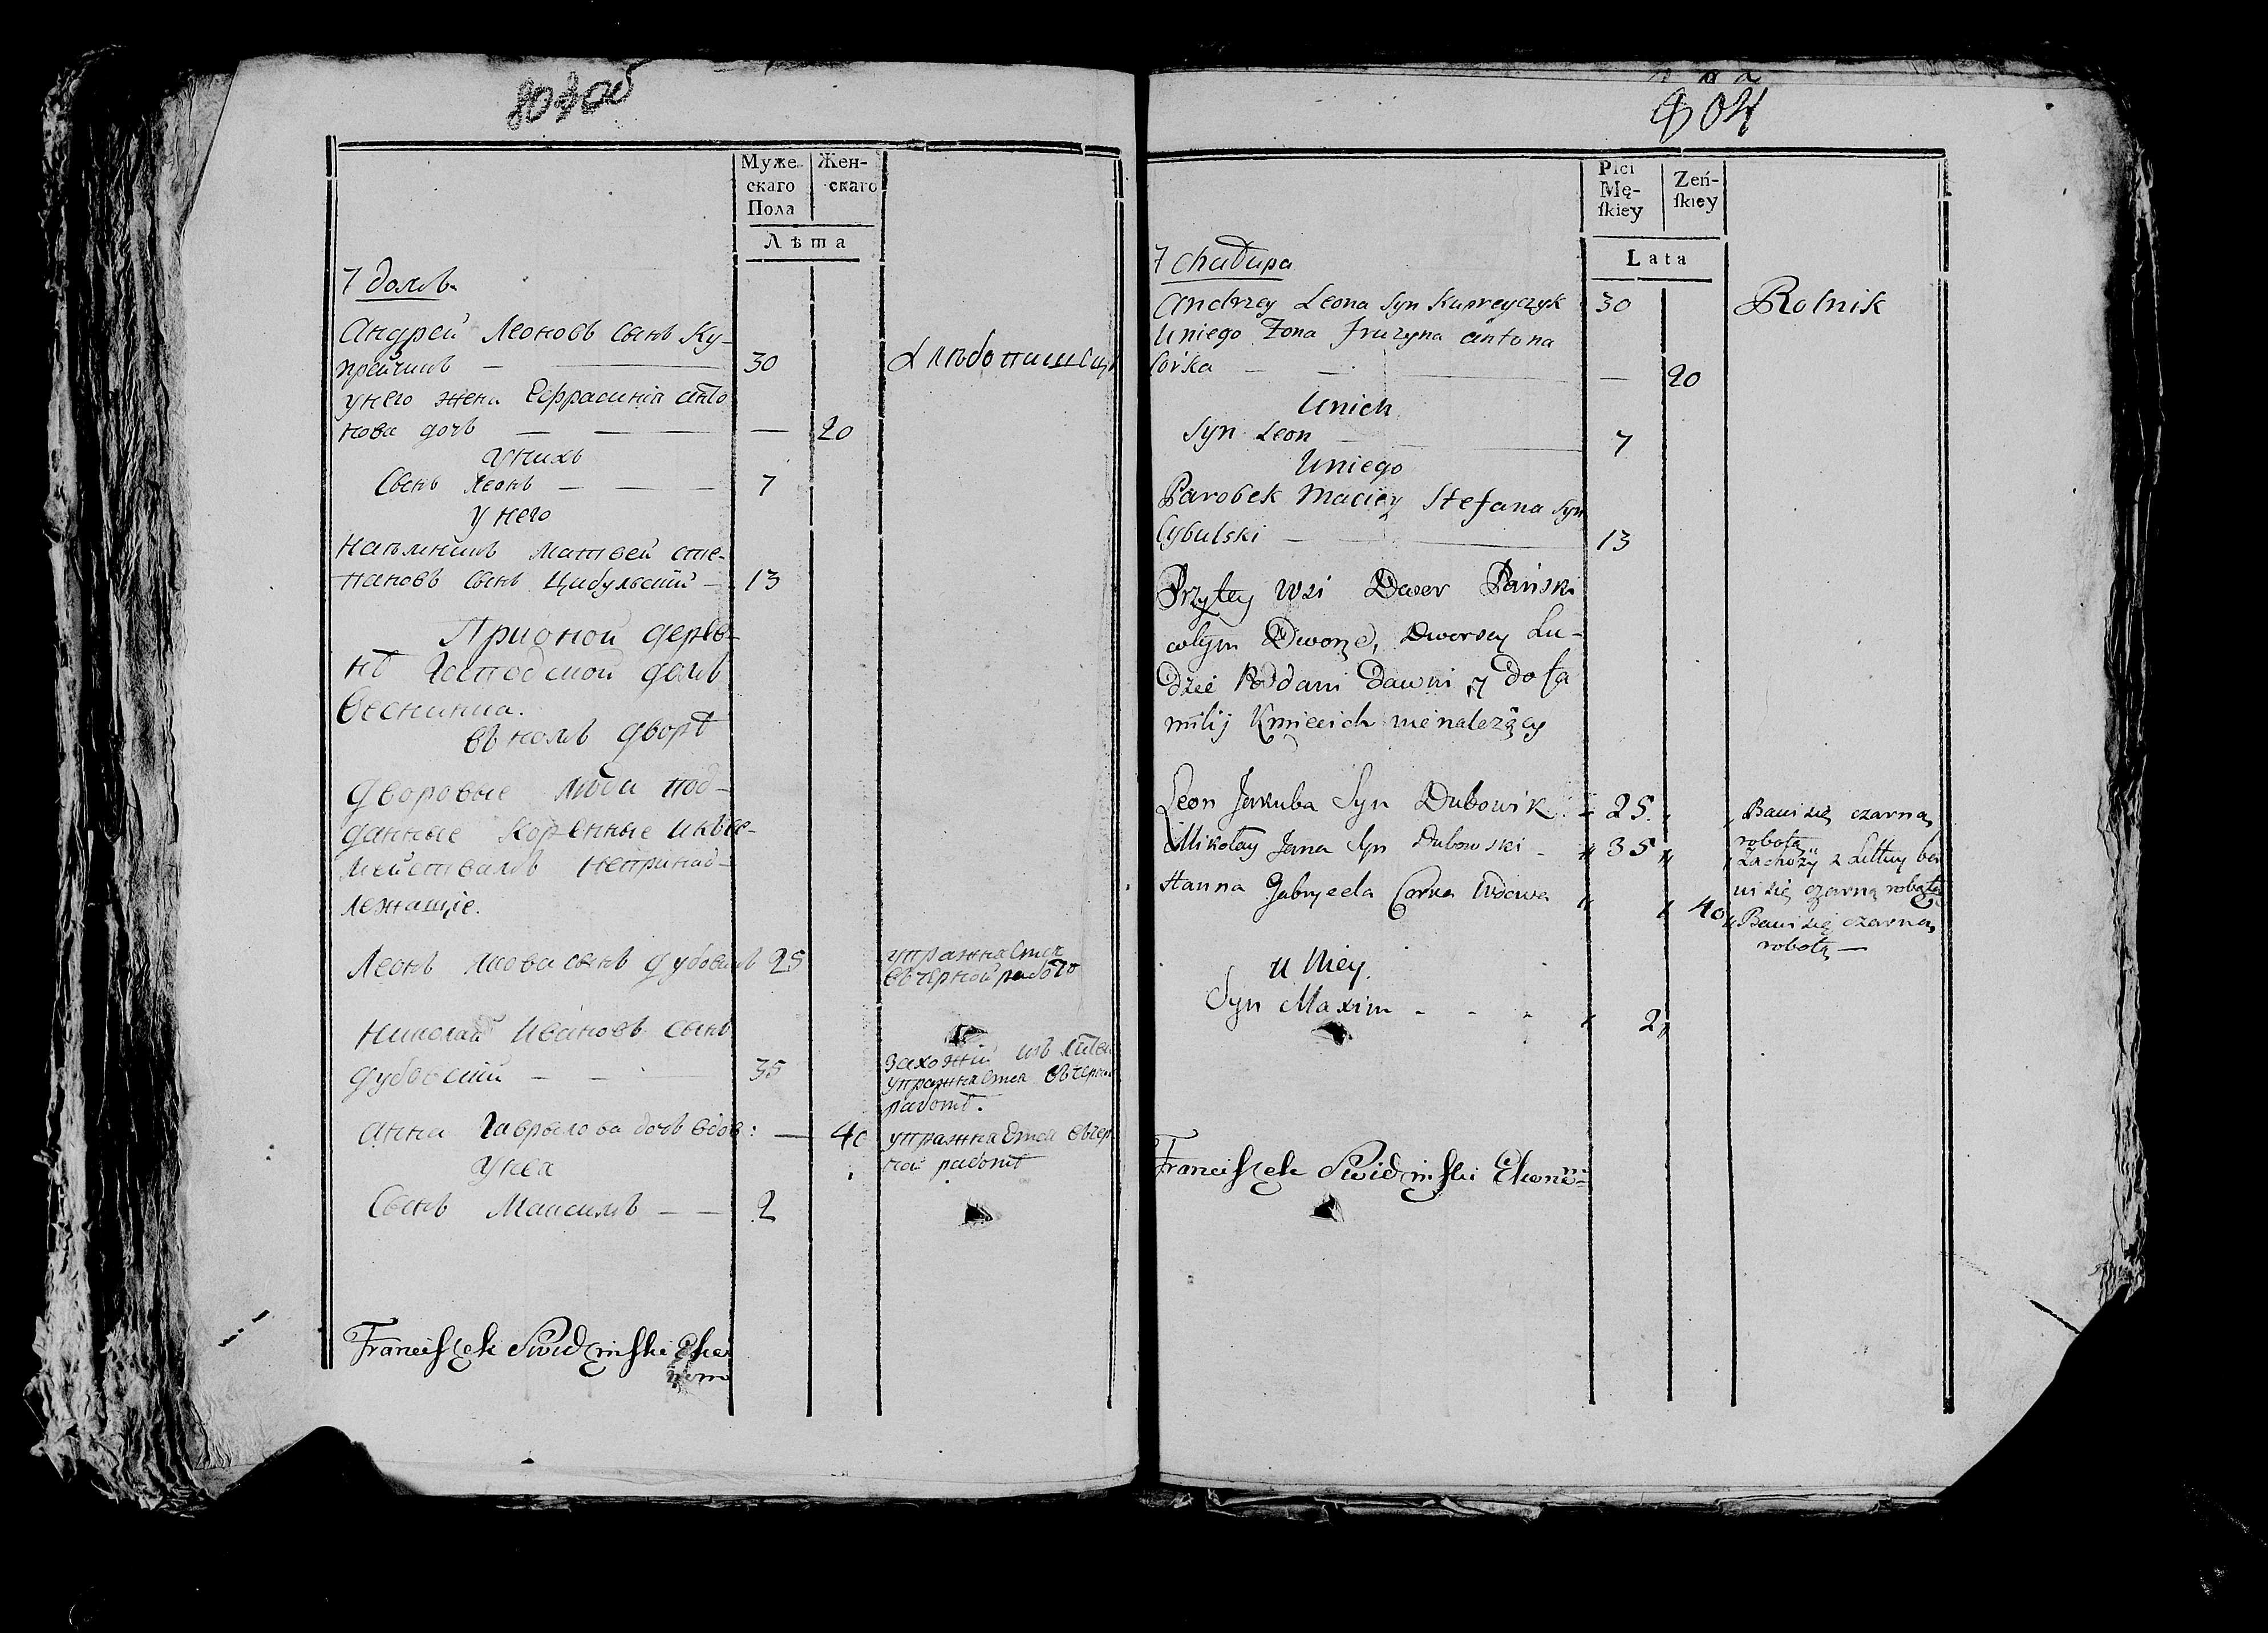 803об
Муже- Жен-
скаго скаго
Пола
Лѣта
7 домъ
Андрей Леоновъ сынъ Ку-
прейчикъ — 30 Хлѣбопашец
у него жена Ефрасинія анто
нова дочь — — — — 20
у нихъ
Сынъ Леонъ — — 7
у него
Наемникъ Матвей сте-
пановъ сынъ Цибульскій — 13
При оной дерев-
нѣ Господской домъ
въ комъ дворѣ
дворовые люди под-
данные коренные и къ се-
мействамъ непринад-
лежащіе.
Леонъ сынъ дубовикъ 25 упражняется
въ черной работѣ
Николай Ивановъ сынъ
дубовскій — — 35 захожій изъ литвы
упражняется въ черной
работѣ.
анна Гаврылова дочь вдов: — 40 упражняется въ чер
ной работѣ
у нея
Сынъ Максимъ — — 2
Franciszek Swidzinski Eko
nom
804
Płci Zeń-
Mę- skiey
skiey
Lata
7 chałupa
Andrzey Leona Syn Kupreyczyk 30 Rolnik
Uniego Zona Fruzyna antona
Corka — — — 20
Unich
Syn Leon — 7
Uniego
Parobek Maciey Stefana Syn
Cybulski — 13
Przytey Wsi Dwor Pański
wtym Dworze, Dworscy Lu-
dzie Poddani Dawni y do fa
milij Kmiecich nienależący
Leon Jakuba Syn Dubowik - 25 „ „ Bawi się czarną
robotą
Mikołay Jana Syn Dubowski - „ 35 „ „ Zachoży z Littwy ba
wi się czarną robotą
Hanna Gabryela Corka Wdowa „ „ 40 „ Bawi się czarną
robotą —
u Niey
Syn Maxim - - - „ 2 „
Franciszek Swidzinski Ekono-